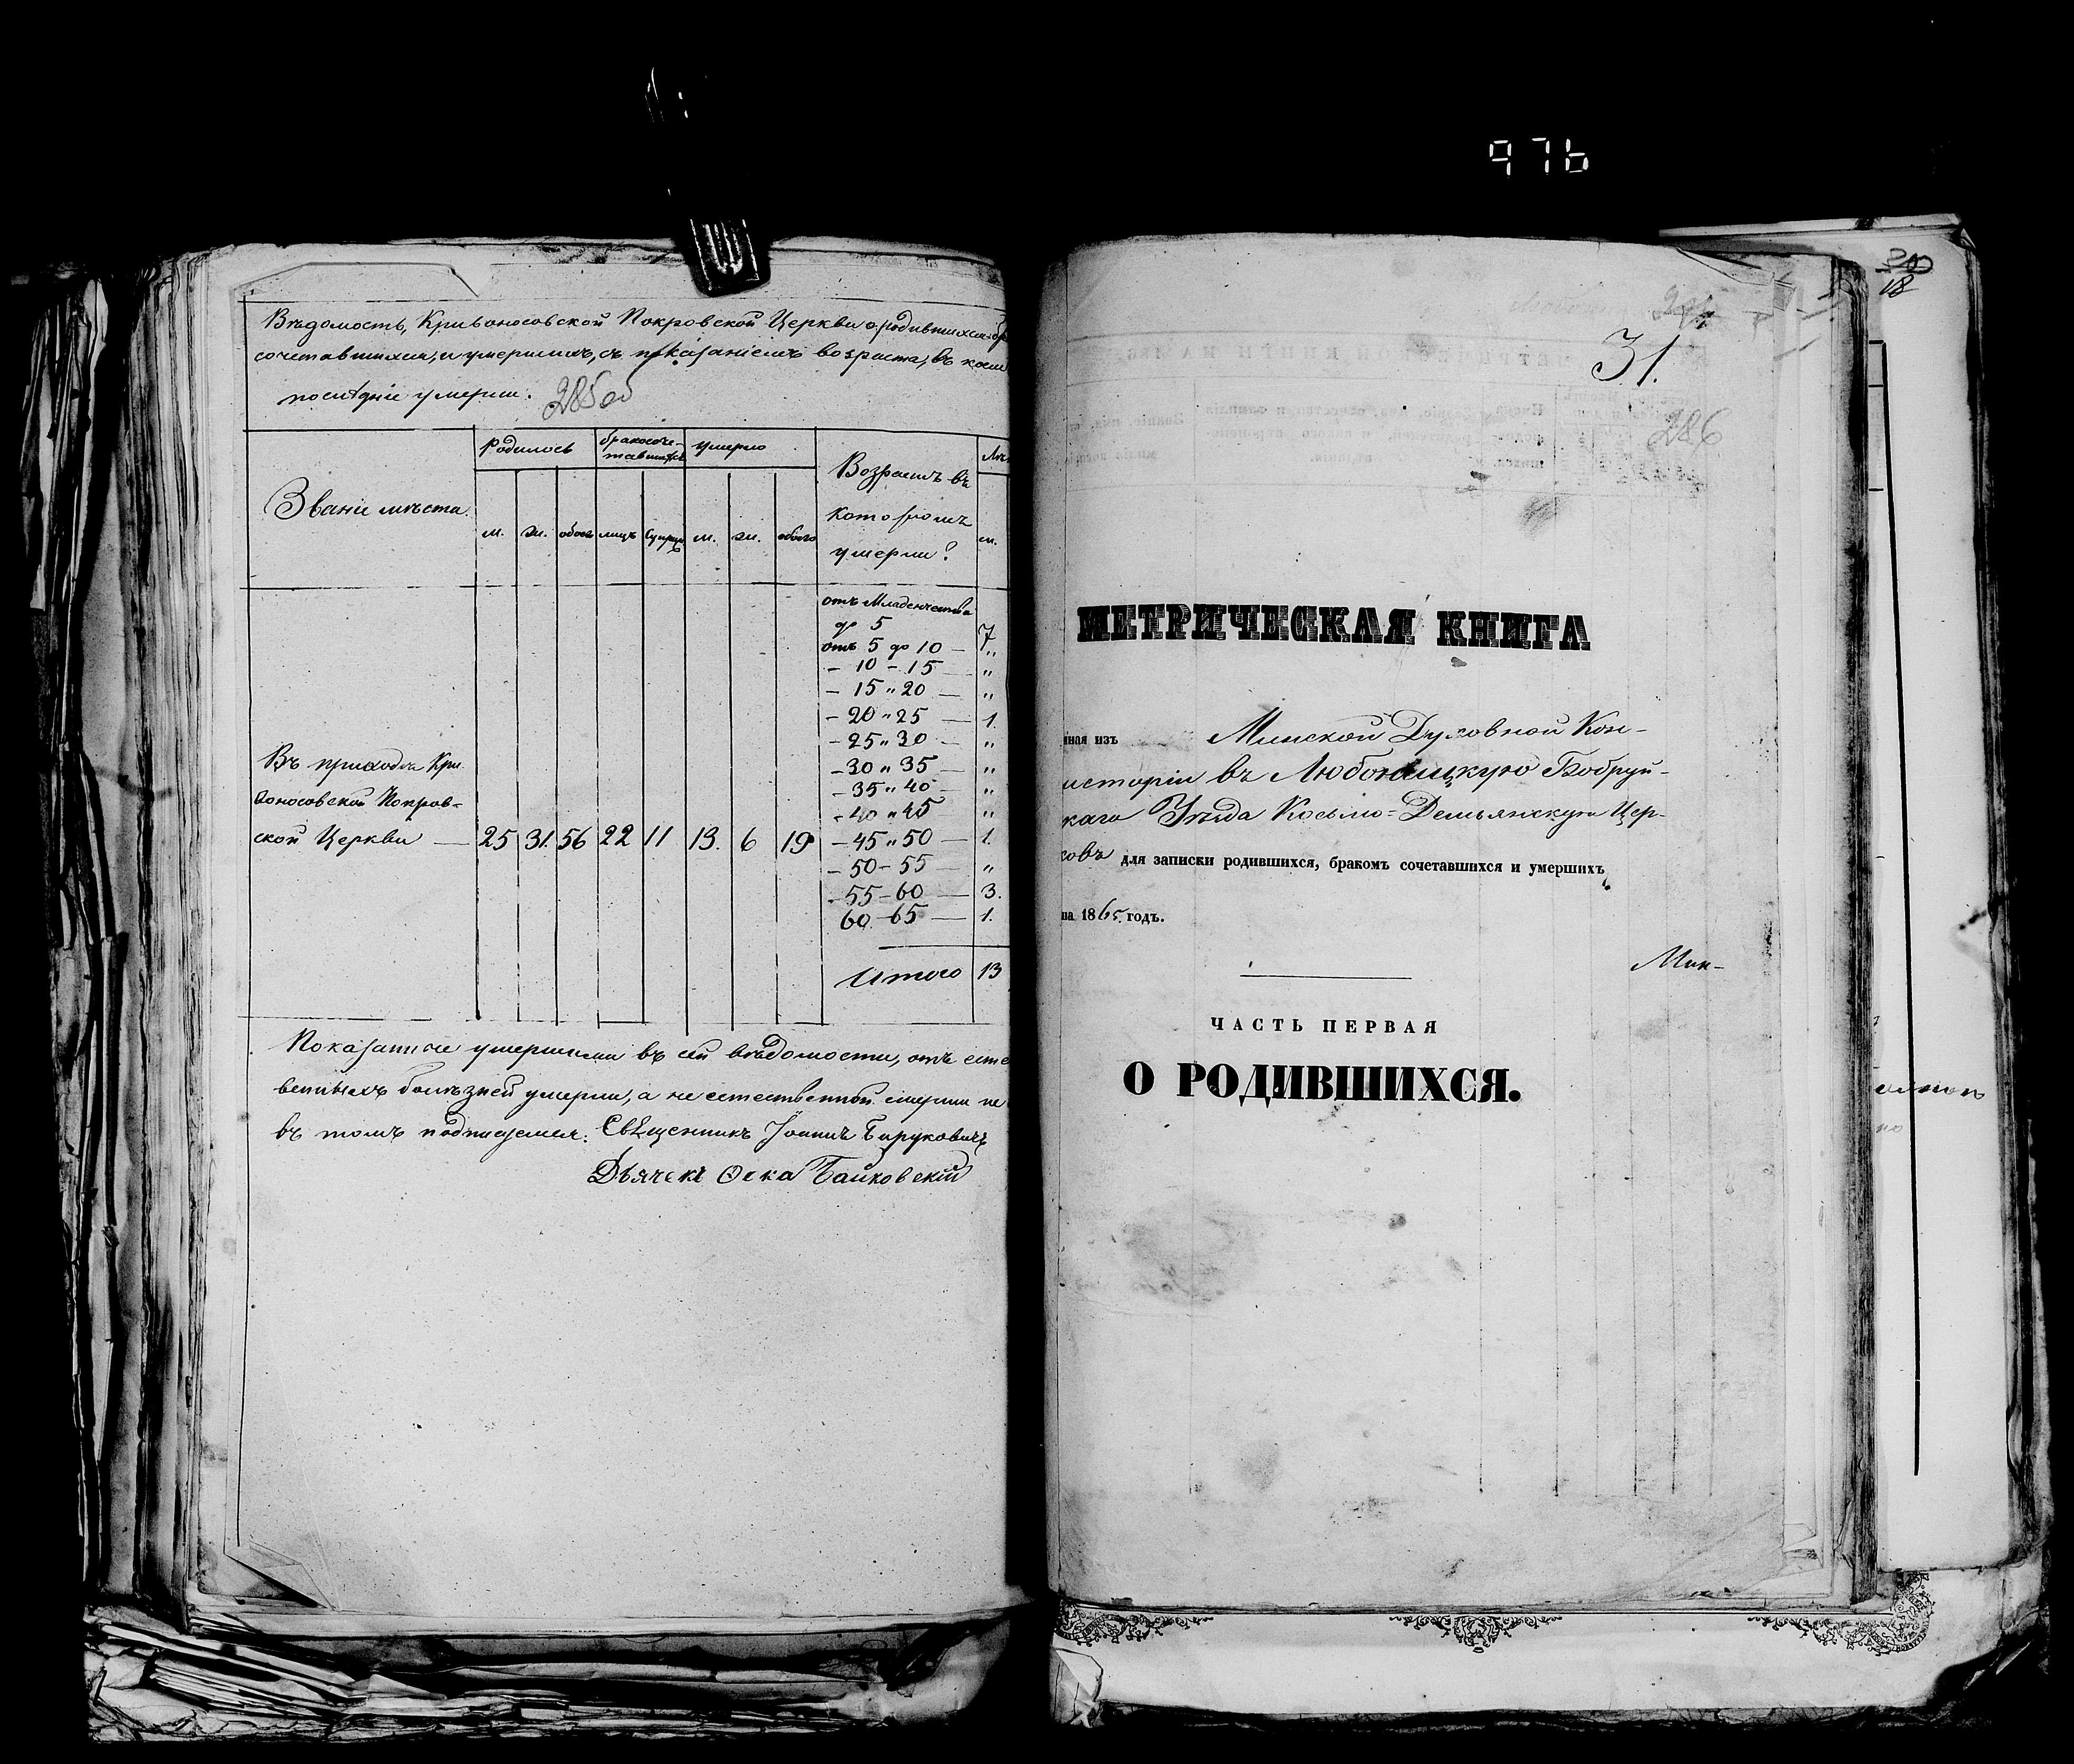 976
Вѣдомость, Кривоносовской Покровской Церкви о родившихся, бр
сочетавшихся, и умершихъ, съ показаніемъ возраста, въ коем
послѣдніе умерли.
285об
Званіе мѣста
Родилось
бракосоче-
тавшихся
умерло
Возрастъ въ
которомъ
умерли?
м.
ж.
обоего
лицъ
супруж
м.
ж.
обоего
м.
отъ Младенчества
до 5 7
отъ 5 до 10 — „
— 10 — 15 — „
— 15 „ 20 — „
— 20 „ 25 — 1.
— 25 „ 30 — „
— 30 „ 35 — „
— 35 „ 40 — „
— 40 „ 45 „
— 45 „ 50 — 1.
— 50 — 55 — „
— 55 — 60 — 3.
60 — 65 — 1.
Въ приходѣ Кри
воносовской Покров-
ской Церкви — 25 31. 56 22 11 13. 6 19
Итого 13
Показанные умершими въ сей вѣдомости, отъ есте
венныхъ болѣзней умерли, а не естественной смерти не
въ томъ подписуемся: Священникъ Іоаннъ Бирукович
Дьячекъ Ѳока Байковскій
30
18
31.
286
МЕТРИЧЕСКАЯ КНИГА
нная изъ Минской Духовной Кон-
исторіи въ Любоницкую Бобруй-
скаго Уѣзда Косьмо-Демьянскую Цер-
ковь для записки родившихся, бракомъ сочетавшихся и умершихъ
на 1865 годъ.
Мин-
ЧАСТЬ ПЕРВАЯ
О РОДИВШИХСЯ.